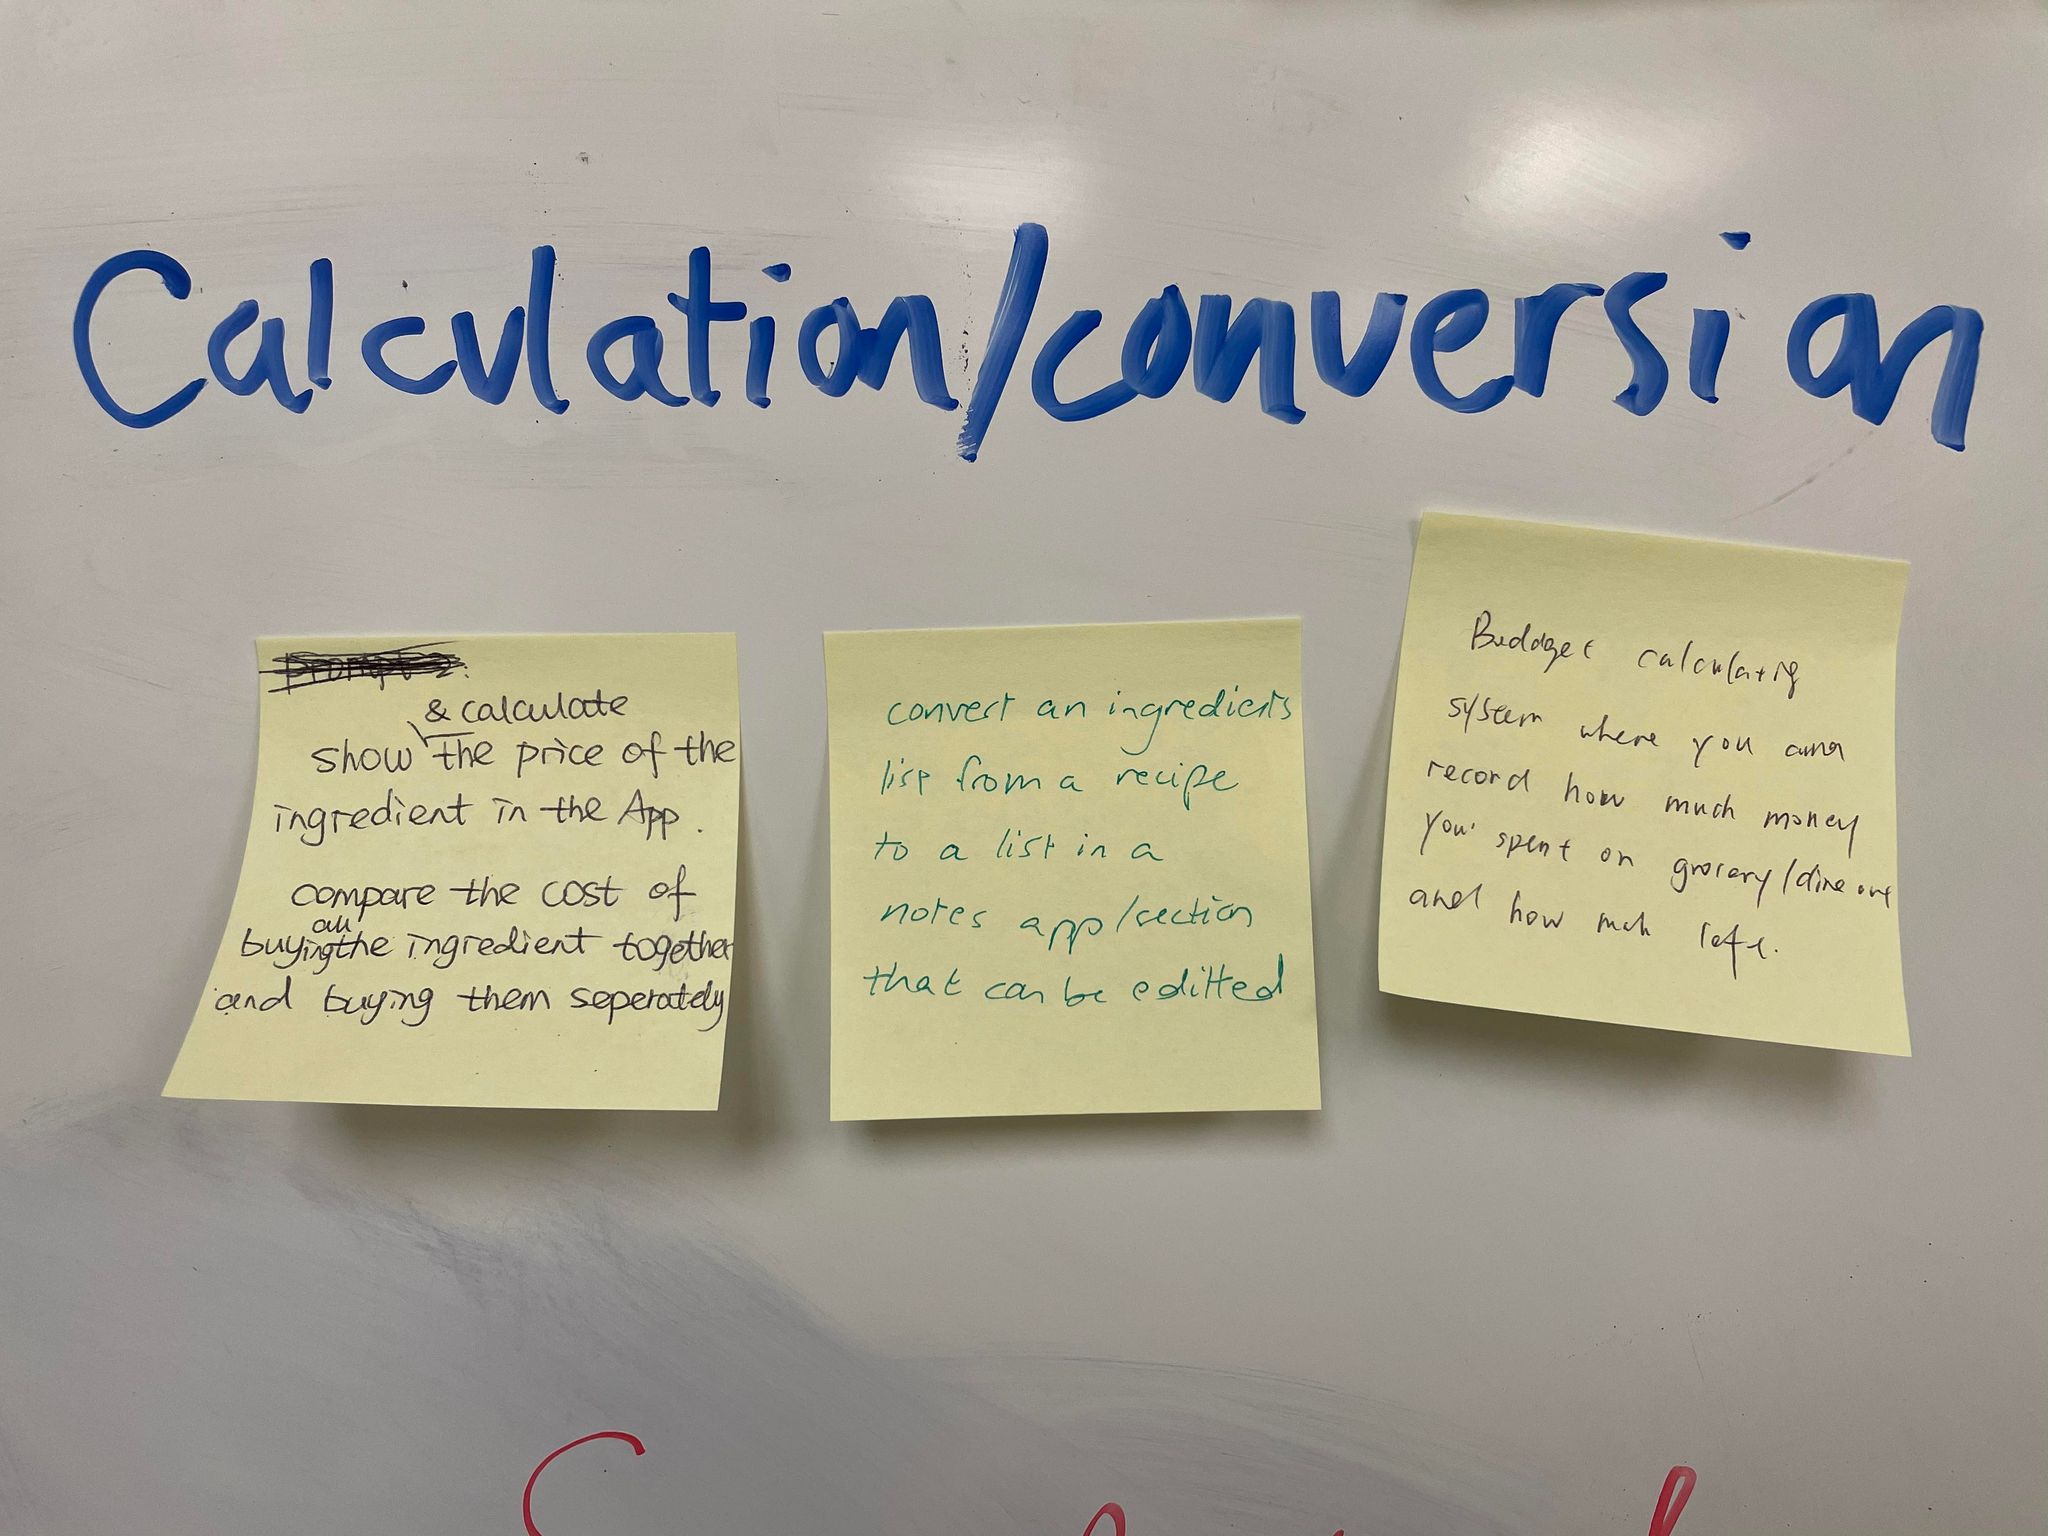 Calculation/conversion
& calculate
show the price of the
ingredient in the App.
compare the cost of
all
buying the ingredient together
and buying them seperately
convert an ingredients
list from a recipe
to a list in a
notes app/section
that can be editted
Budget calculating
system where you
record how much money
you spent on grocery/dine out
and how much left.